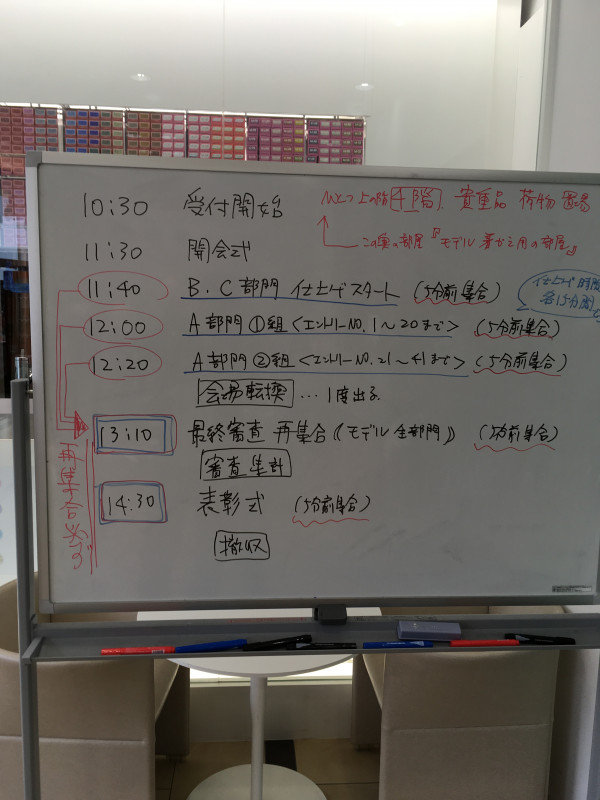 10:30 受付開始
ひとつ上の階 4階 貴重品 荷物置場
この奥の部屋『モデル着がえ用の部屋』
11:30 開会式
11:40 B.C部門 仕上げスタート (5分前集合)
仕上げ時間
各15分間
12:00 A部門①組<エントリーNO.1~20まで> (5分前集合)
12:20 A部門②組<エントリーNO.21~41まで> (5分前集合)
会場転換…1度出る
13:10 最終審査 再集合《モデル全部門》 (5分前集合)
審査集計
14:30 表彰式 (5分前集合)
撤収
再集合必ず